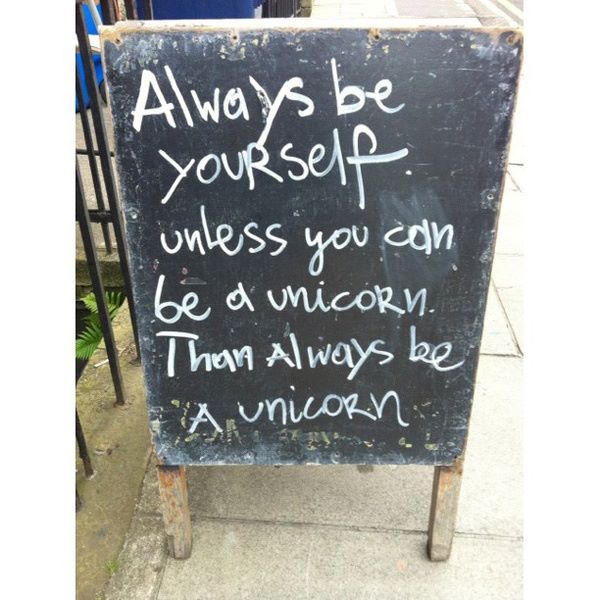 Always be
youRself.
unless you can
be a unicoRn.
Than Always be
A unicoRn